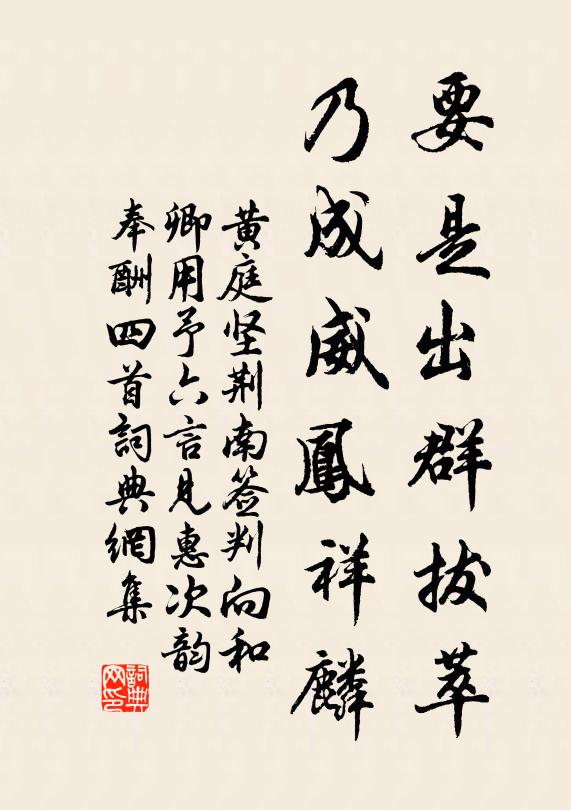 要是出群拔萃
乃成威鳳祥麟
黄庭坚荆南签判向和
卿用予六言見惠次韵
奉酬四首詞典網集
詞典
网印